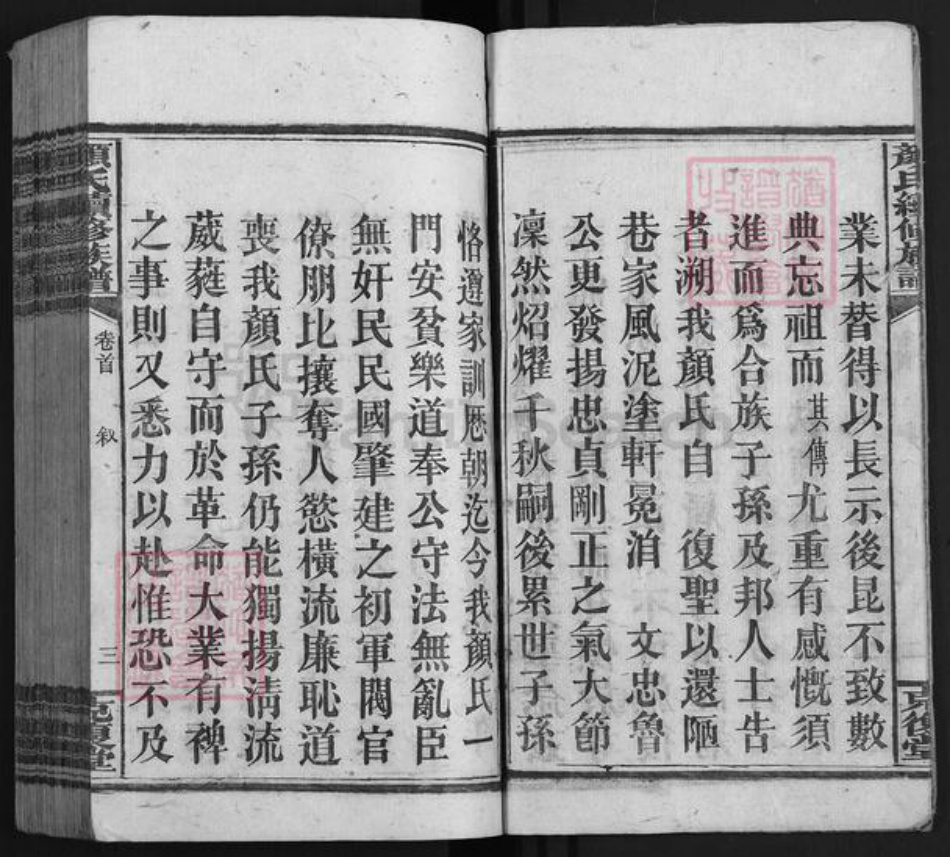 顏氏續修族譜
業未替得以長示後昆不致數
典忘祖而其傳尤重有感慨須
進而爲合族子孫及邦人士告
者溯我顏氏自 復聖以還陋
巷家風泥塗軒冕洎 文忠魯
公更發揚忠貞剛正之氣大節
凜然炤燿千秋嗣後累世子孫
恪遵家訓歷朝迄今我顏氏一
門安貧樂道奉公守法無亂臣
無奸民民國肇建之初軍閥官
僚朋比攘奪人慾橫流廉恥道
喪我顏氏子孫仍能獨揚淸流
葳蕤自守而於革命大業有裨
之事則又悉力以赴惟恐不及
顏氏續修族譜
卷首 叙
三
克復堂